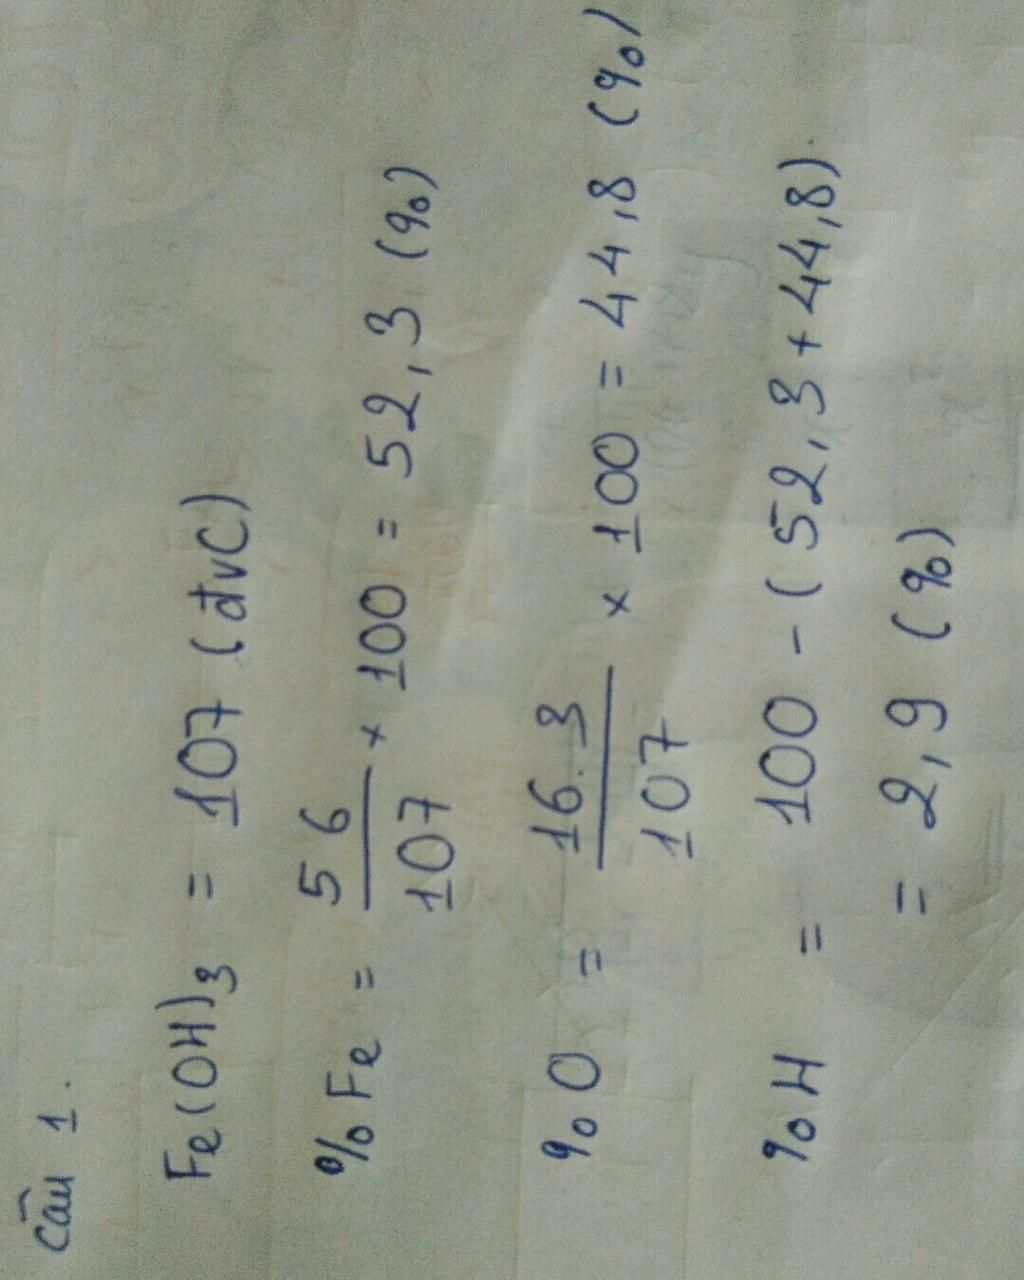 Câu 1.
Fe(OH)₃ = 107 (đvC)
% Fe = 56/107 × 100 = 52,3 (%)
% O = 16.3/107 × 100 = 44,8 (%)
% H = 100 - (52,3 + 44,8)
= 2,9 (%)